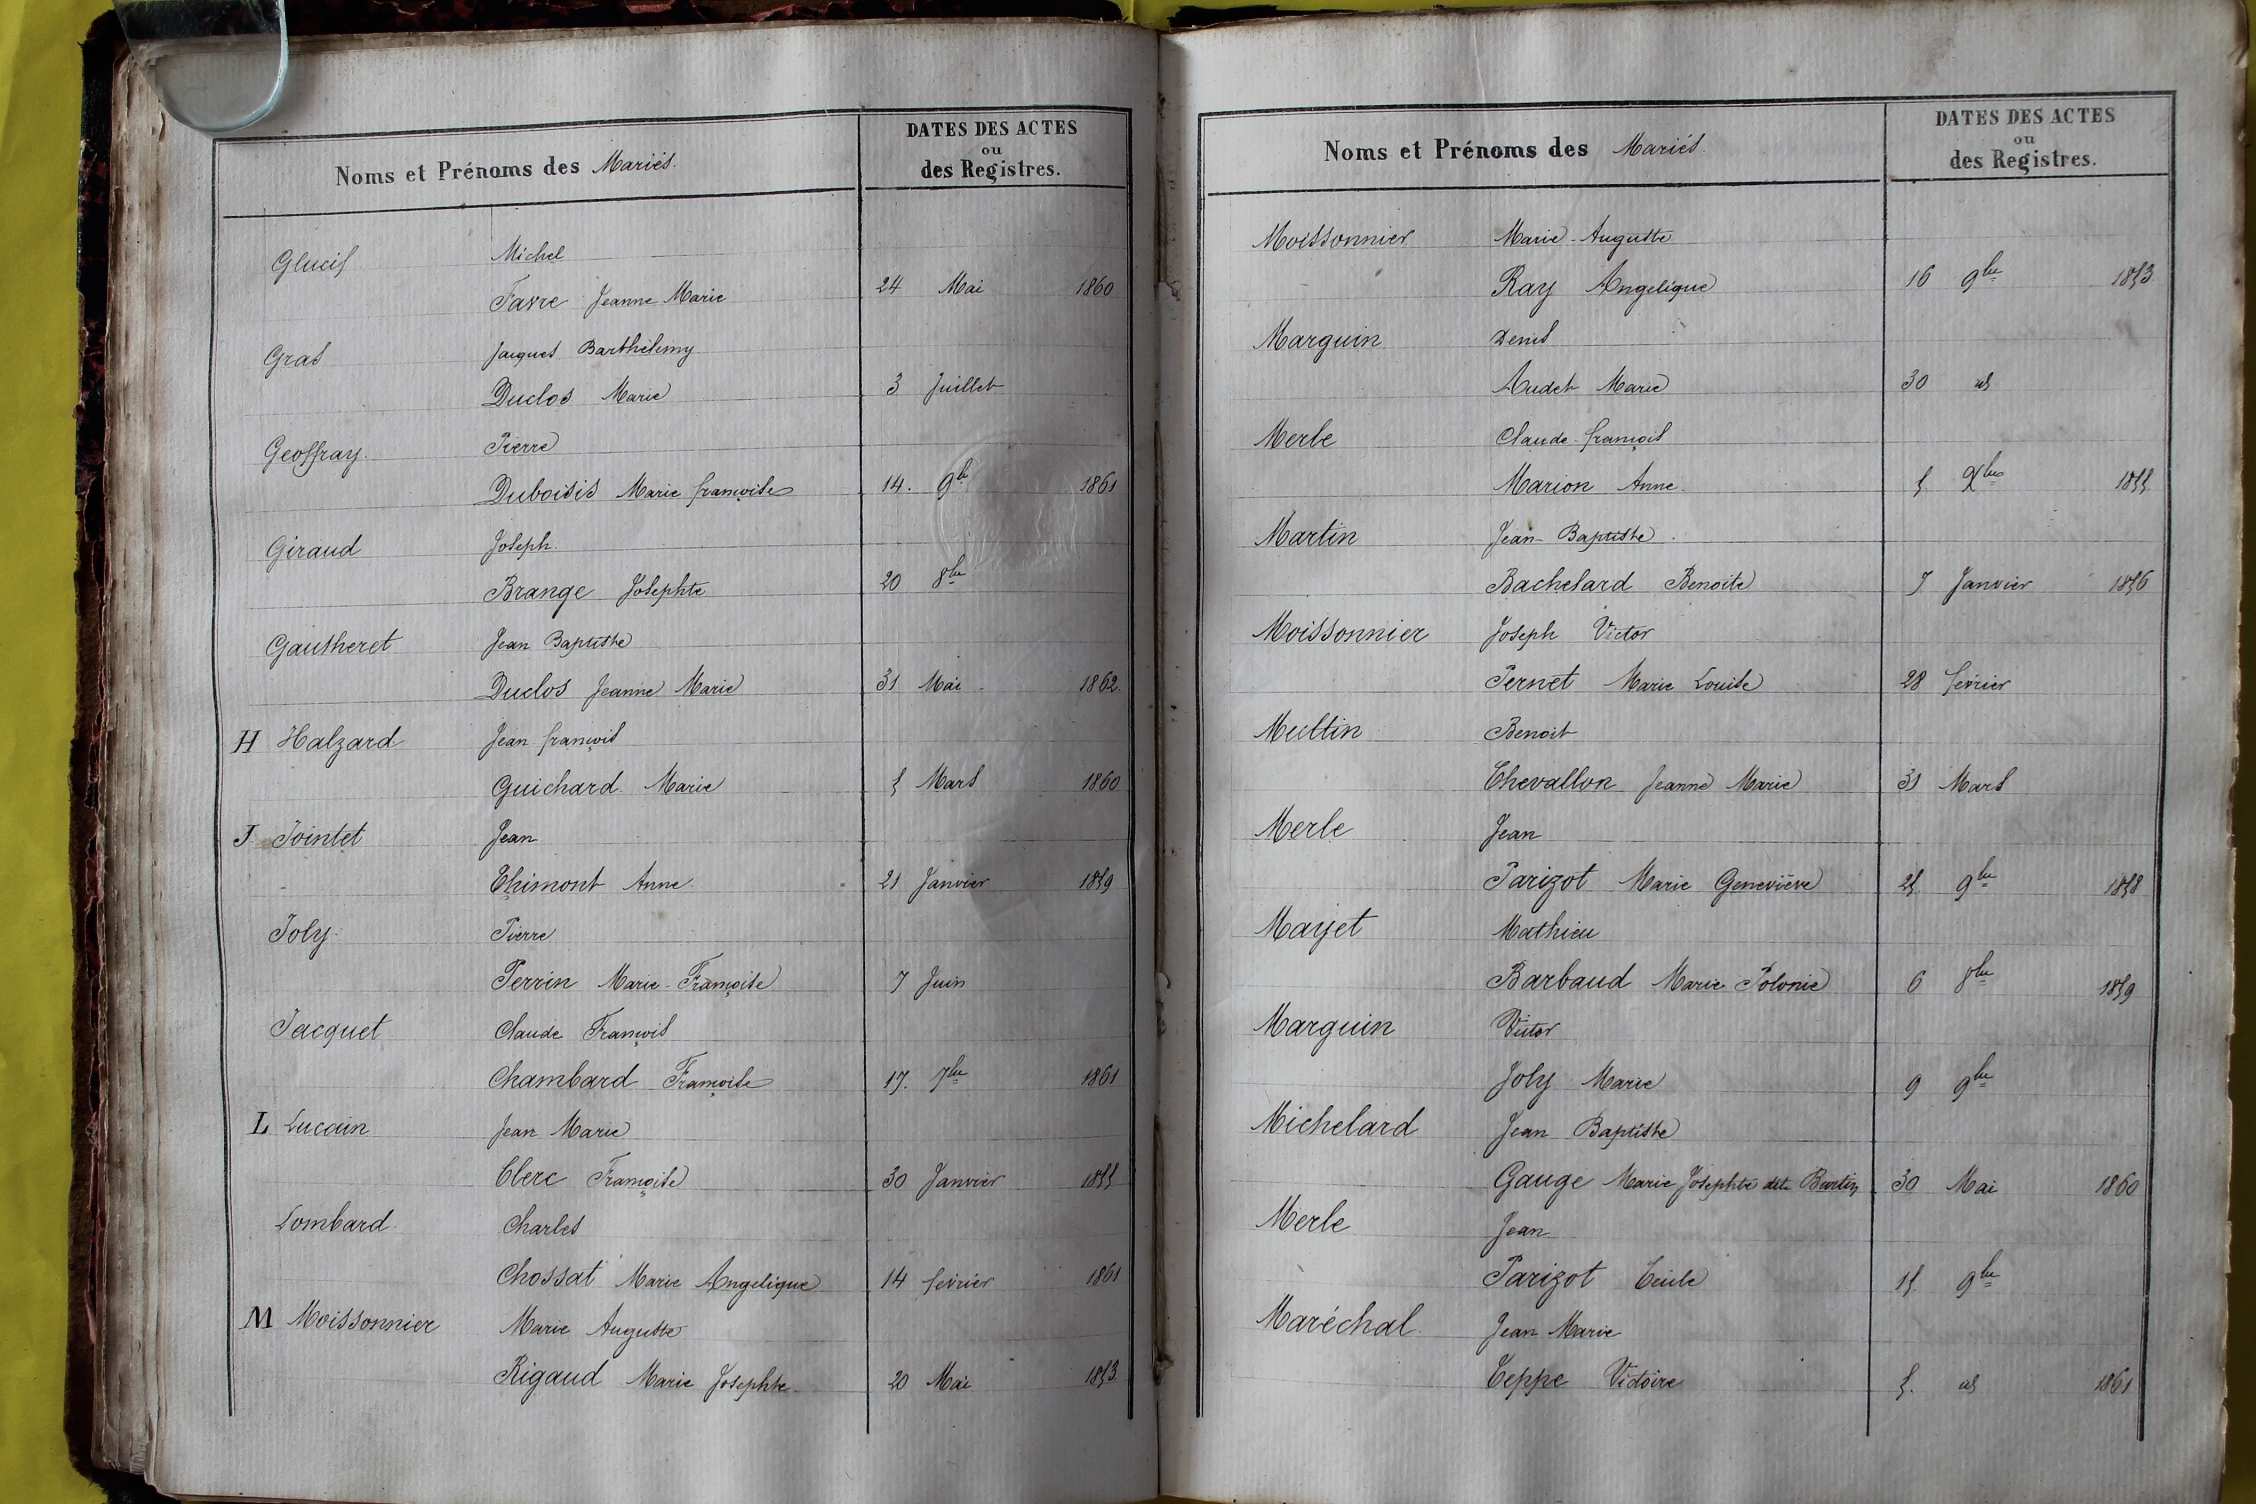 Noms et Prénoms des Mariés.
DATES DES ACTES
ou
des Registres.
Glucis Michel
Favre Jeanne Marie 24 Mai 1860
Gras Jacques Barthelemy
Duclos Marie 3 Juillet
Geoffray Pierre
Duboisis Marie françoise 14. 9bre 1861
Giraud Joseph.
Brange Josephte 20 8bre
Gautheret Jean Baptiste
Duclos Jeanne Marie 31 Mai 1862.
H Halzard Jean françois
Guichard Marie 5 Mars 1860
J Jointet Jean
Chimont Anne 21 Janvier 1859
Joly Pierre
Perrin Marie Françoise 7 Juin
Jacquet Claude François
Chambard Françoise 17. 7bre 1861
L Lucain Jean Marie
Clerc Françoise 30 Janvier 1855
Lombard Charles
Chossat Marie Angelique 14 février 1861
M Moissonnier Marie Auguste
Rigaud Marie Josephte 20 Mai 1853
Noms et Prénoms des Mariés.
DATES DES ACTES
ou
des Registres.
Moissonnier Marie Auguste
Ray Angelique 16 9bre 1853
Marguin Denis
Audet Marie 30 id
Merle Claude françois
Marion Anne 5 Xbre 1855
Martin Jean Baptiste
Bachelard Benoite 7 Janvier 1856
Moissonnier Joseph Victor
Pernet Marie Louise 28 février
Multin Benoit
Chevallon Jeanne Marie 31 Mars
Merle Jean
Parizot Marie Geneviève 25 9bre 1858
Mayet Mathieu
Barbaud Marie Polonie 6 8bre 1859
Marguin Victor
Joly Marie 9 9bre
Michelard Jean Baptiste
Gauge Marie Josephte dit Burtin 30 Mai 1860
Merle Jean
Parizot Cécile 15. 9bre
Maréchal Jean Marie
Teppe Victoire 5. id 1861